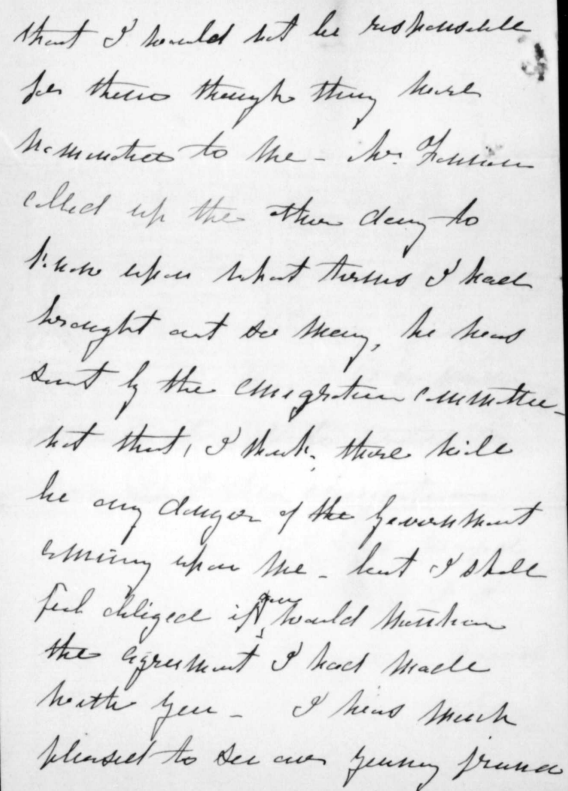 that I would not be responsible
for them though they were
nominated to me - Mr.
called up the other day to
know upon what terms I had
brought out so many, he was
sent by the emigration committee -
not that, I think, there will
be any danger of the Government
coming upon me - but I shall
feel obliged if you would mention
the agreement I had made
with you - I was much
pleased to see our young friend